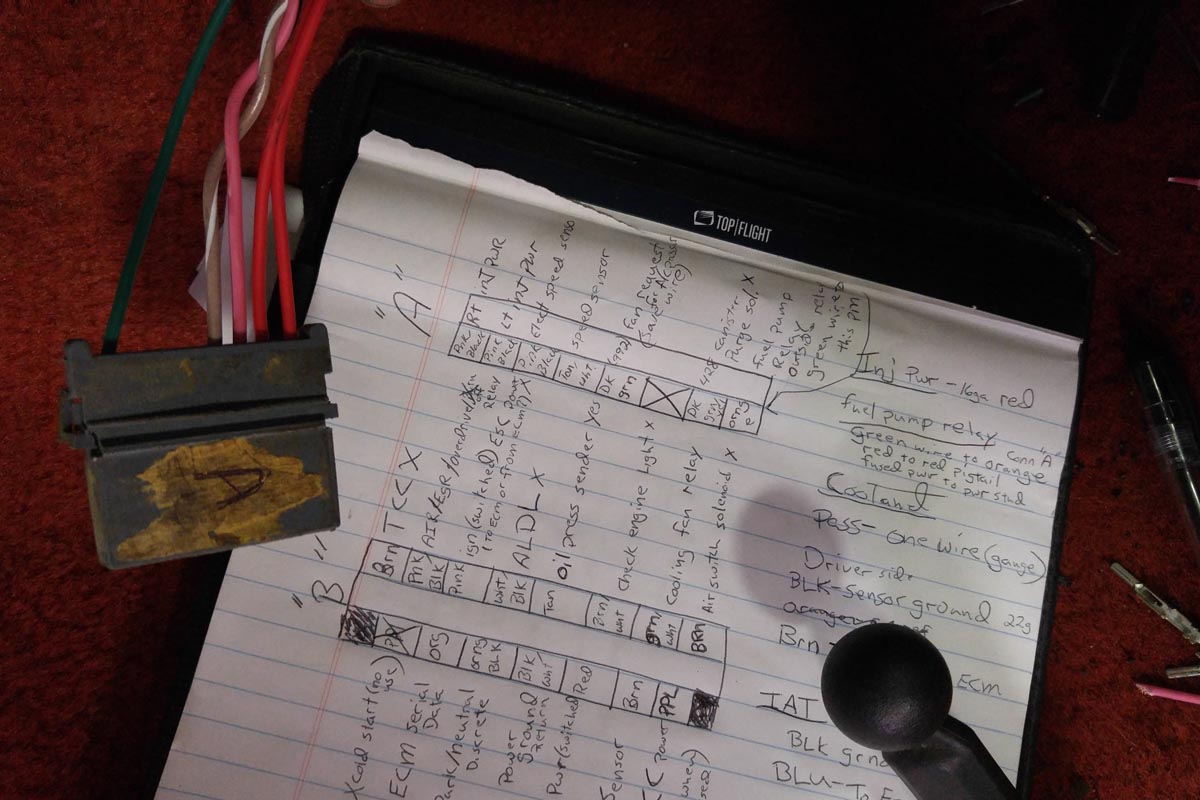 A
TOP|FLIGHT
"A"
Pink
Black
RT inj PWR
Pink
Black
Lt inj PWR
Pink
Black
elect speed senso
Tan
wht
speed sensor
DK
grn
(492) fan request
DK
grn
yel
428 canister
Purge sol. X
orng
e
fuel pump
Relay
green wire
this pin
"B"
Brn
TCC X
Pnk
BLK
AIR/EGR/overdrive
Pink
ign (switched) ESC
wht
BLK
ALDL X
Tan
oil press sender yes
Brn
wht
Check engine light X
Brn
wht
Cooling fan relay
BRN
Air switch solenoid X
XCold start (no
use)
org
ECM serial
Data
orng
BLK
Park/neutral
Discrete
BLK
wht
Power
Ground
Return
Red
Pwr (switched
Brn
Sensor
PPL
Power
when
Inj Pwr - red
fuel pump relay
Conn "A"
Green wire to orange
red to red pigtail
fused pwr to pwr stud
Coolant
Pass - one wire (gauge)
Driver side
BLK - sensor ground 22g
Brn -
ECM
IAT
BLK grn
BLU - To E